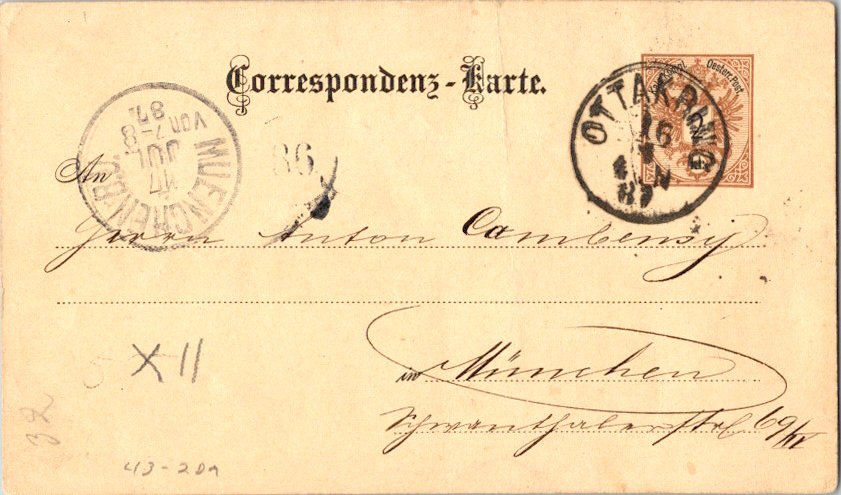 Correspondenz-Karte.
Oesterr. Post
OTTAKRING
16
87
MUENCHEN
17
JUL
VON 7-8
87
86
An
Herrn Anton
in München
Schwanthalerstr. 69/II
X II
32
43-20a